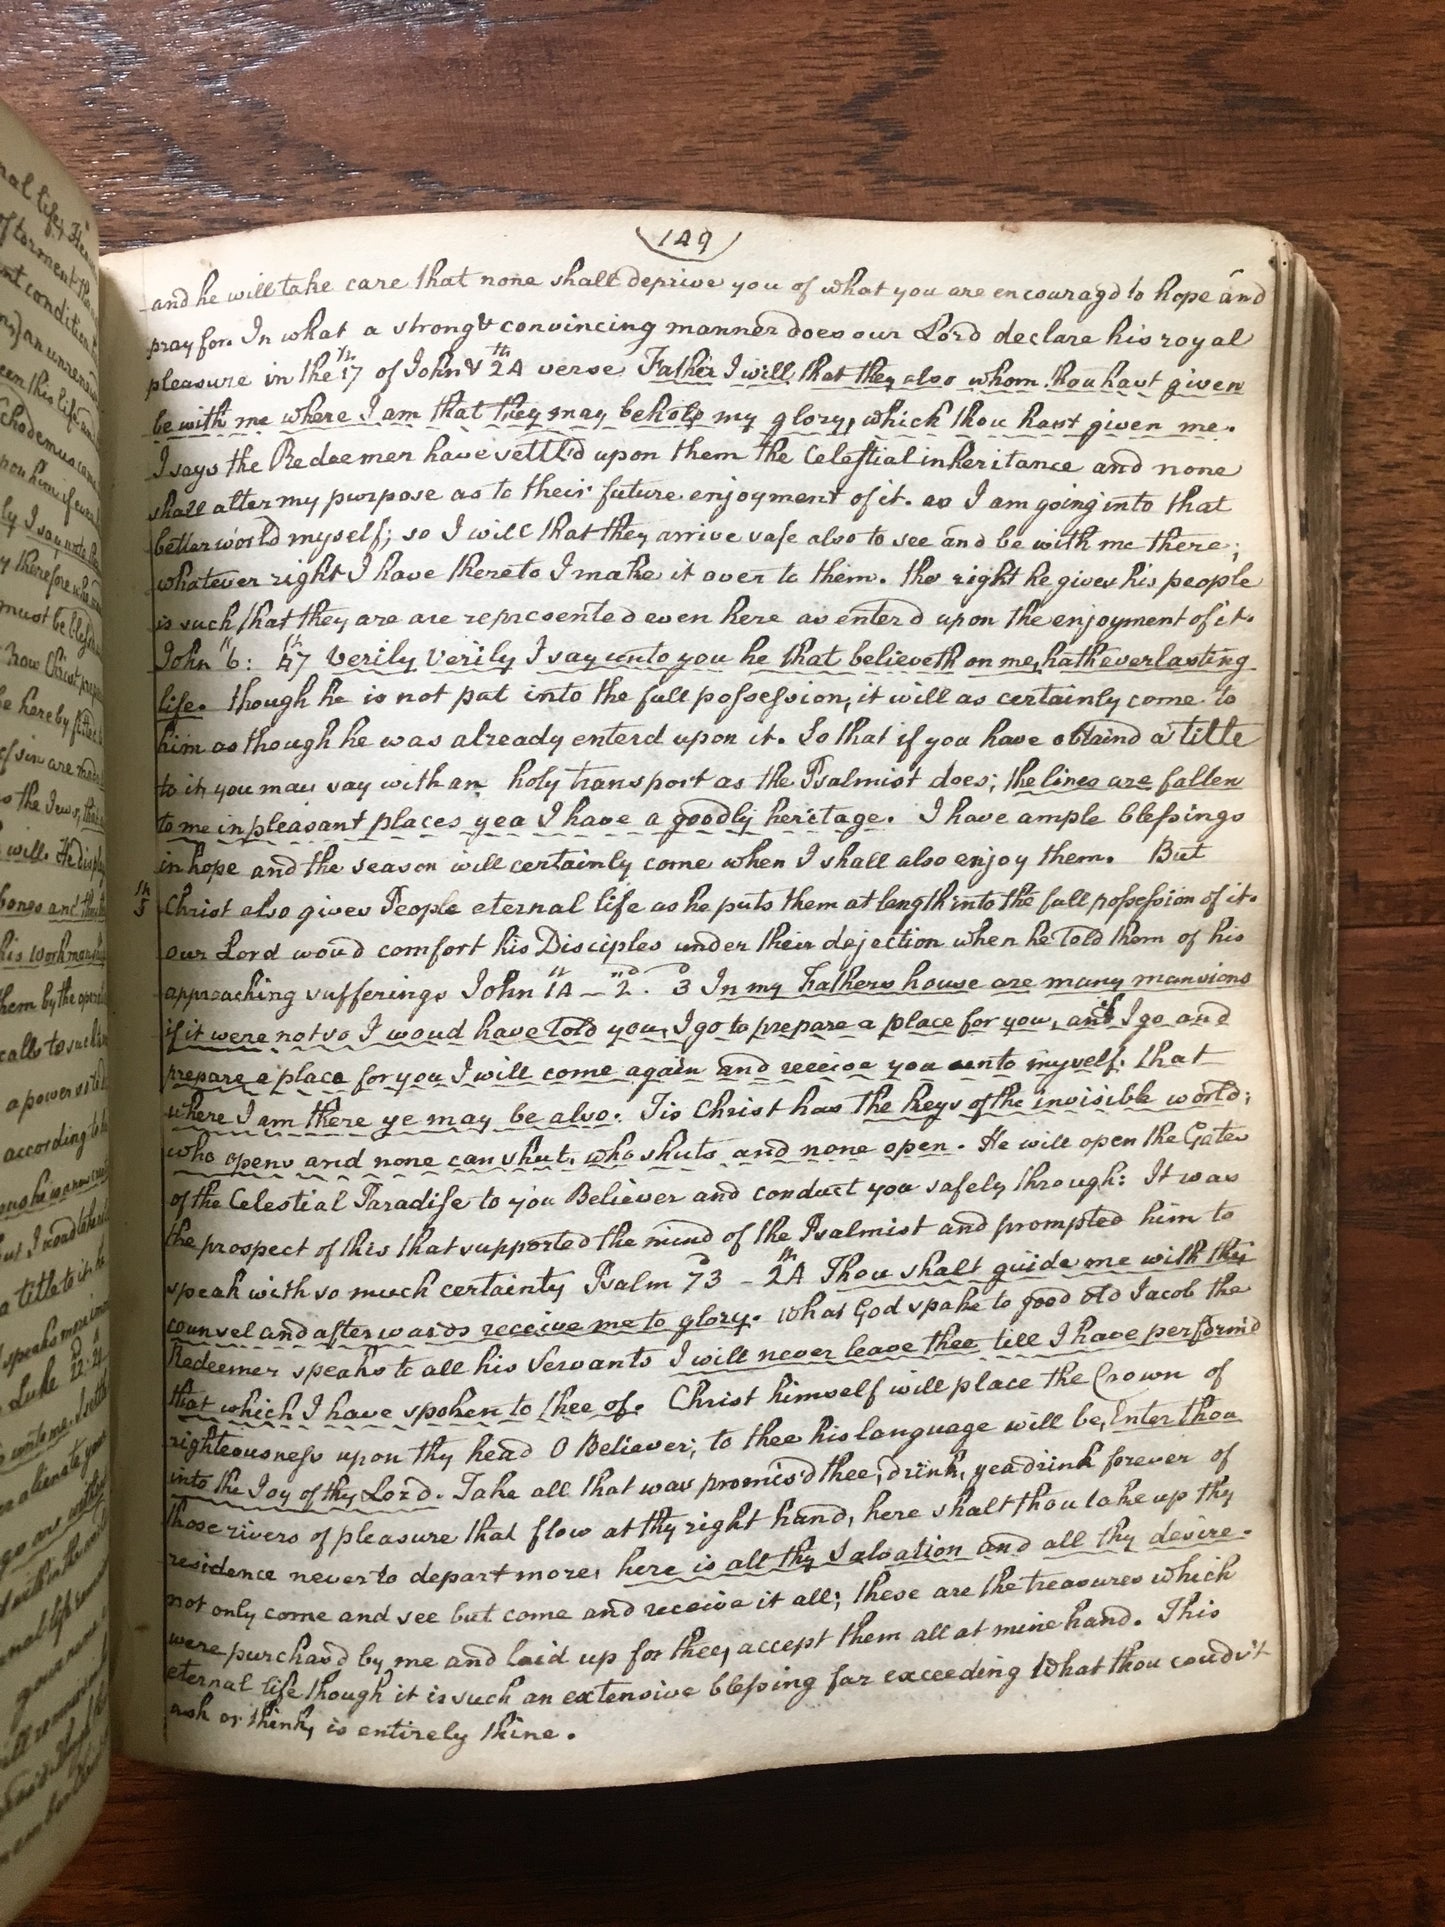 149
and he will take care that none shall deprive you of what you are encouragd to hope and
pray for. In what a strong & convincing manner does our Lord declare his royal
pleasure in the 17th of John & 24th verse Father I will that they also whom thou hast given
be with me where I am that they may behold my glory, which thou hast given me.
I says the Redeemer have settl'd upon them the Celestial inheritance and none
shall alter my purpose as to their future enjoyment of it. as I am going into that
better world myself; so I will that they arrive safe also to see and be with me there;
whatever right I have thereto I make it over to them. the right he gives his people
is such that they are are represented even here as enterd upon the enjoyment of it.
John 6th: 47th Verily Verily I say unto you he that believeth on me, hath everlasting
life. though he is not put into the full possession, it will as certainly come to
him as though he was already enterd upon it. So that if you have obtaind a title
to it, you may say with an holy transport as the Psalmist does; the lines are fallen
to me in pleasant places yea I have a goodly heritage. I have ample blessings
in hope and the season will certainly come when I shall also enjoy them. But
5th Christ also gives People eternal life as he puts them at length into the full possession of it.
our Lord woud comfort his Disciples under their dejection when he told them of his
approaching sufferings John 14th - 2nd. 3d In my Fathers house are many mansions
if it were not so I woud have told you, I go to prepare a place for you, and if I go and
prepare a place for you I will come again and receive you unto myself. that
where I am there ye may be also. Tis Christ has the keys of the invisible world;
who opens and none can shut, who shuts and none open. He will open the Gates
of the Celestial Paradise to you Believer and conduct you safely through: It was
the prospect of this that supported the mind of the Psalmist and prompted him to
speak with so much certainty Psalm 73d - 24th Thou shalt guide me with thy
counsel and afterwards receive me to glory. What God spake to good old Jacob the
Redeemer speaks to all his Servants I will never leave thee till I have perform'd
that which I have spoken to thee of. Christ himself will place the Crown of
righteousness upon thy head O Believer; to thee his language will be, Enter thou
into the Joy of thy Lord. Take all that was promis'd thee; drink, yea drink forever of
those rivers of pleasure that flow at thy right hand, here shalt thou take up thy
residence never to depart more, here is all thy Salvation and all thy desire.
not only come and see but come and receive it all; these are the treasures which
were purchas'd by me and laid up for thee, accept them all at mine hand. This
eternal life though it is such an extensive blessing far exceeding what thou coud'st
ask or think, is entirely thine.